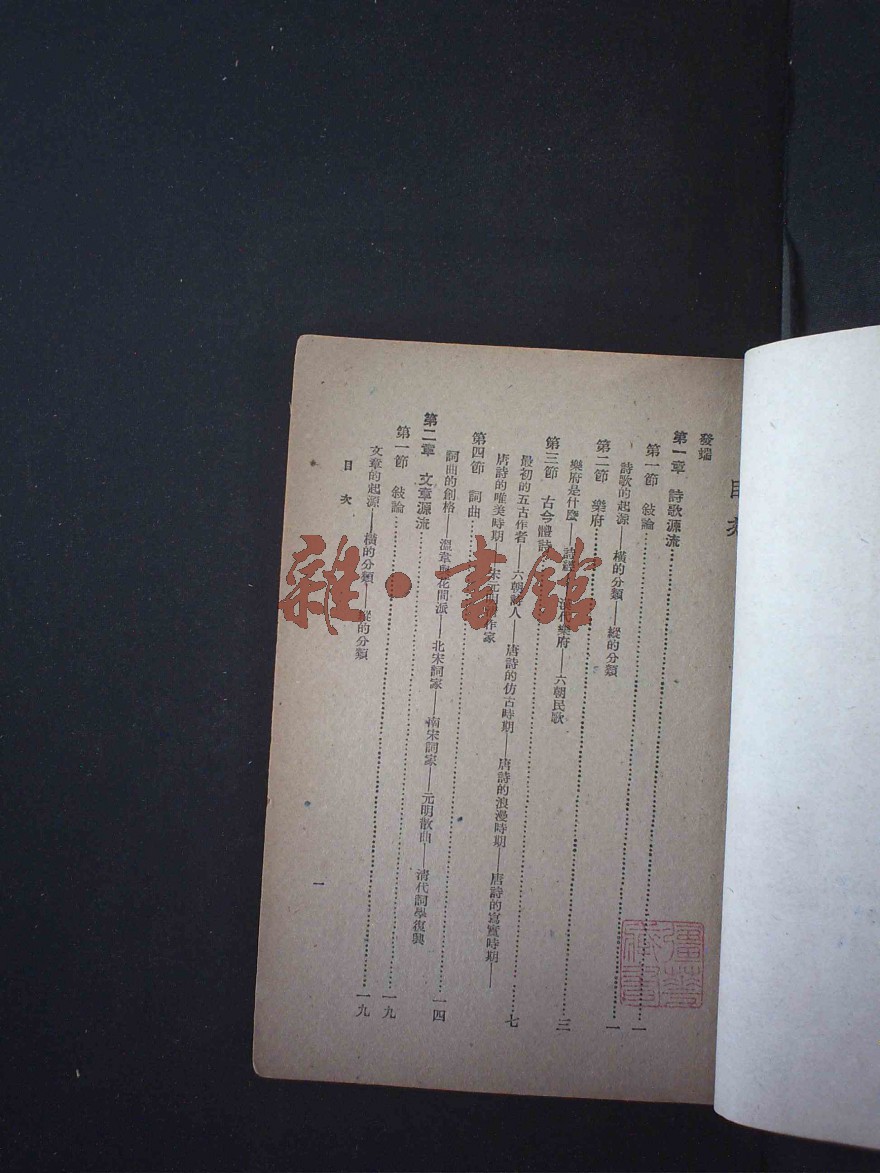 目次
發端
第一章 詩歌源流……一
第一節 敍論……一
詩歌的起源——橫的分類——縱的分類
第二節 樂府……三
樂府是什麼——詩經——漢代樂府——六朝民歌
第三節 古今體詩……七
最初的五古作者——六朝詩人——唐詩的仿古時期——唐詩的浪漫時期——唐詩的寫實時期——
唐詩的唯美時期——宋元明清作家
第四節 詞曲……一四
詞曲的創格——溫韋與花間派——北宋詞家——南宋詞家——元明散曲——清代詞學復興
第二章 文章源流……一九
第一節 敍論……一九
文章的起源——橫的分類——縱的分類
目次
一
雜·書館